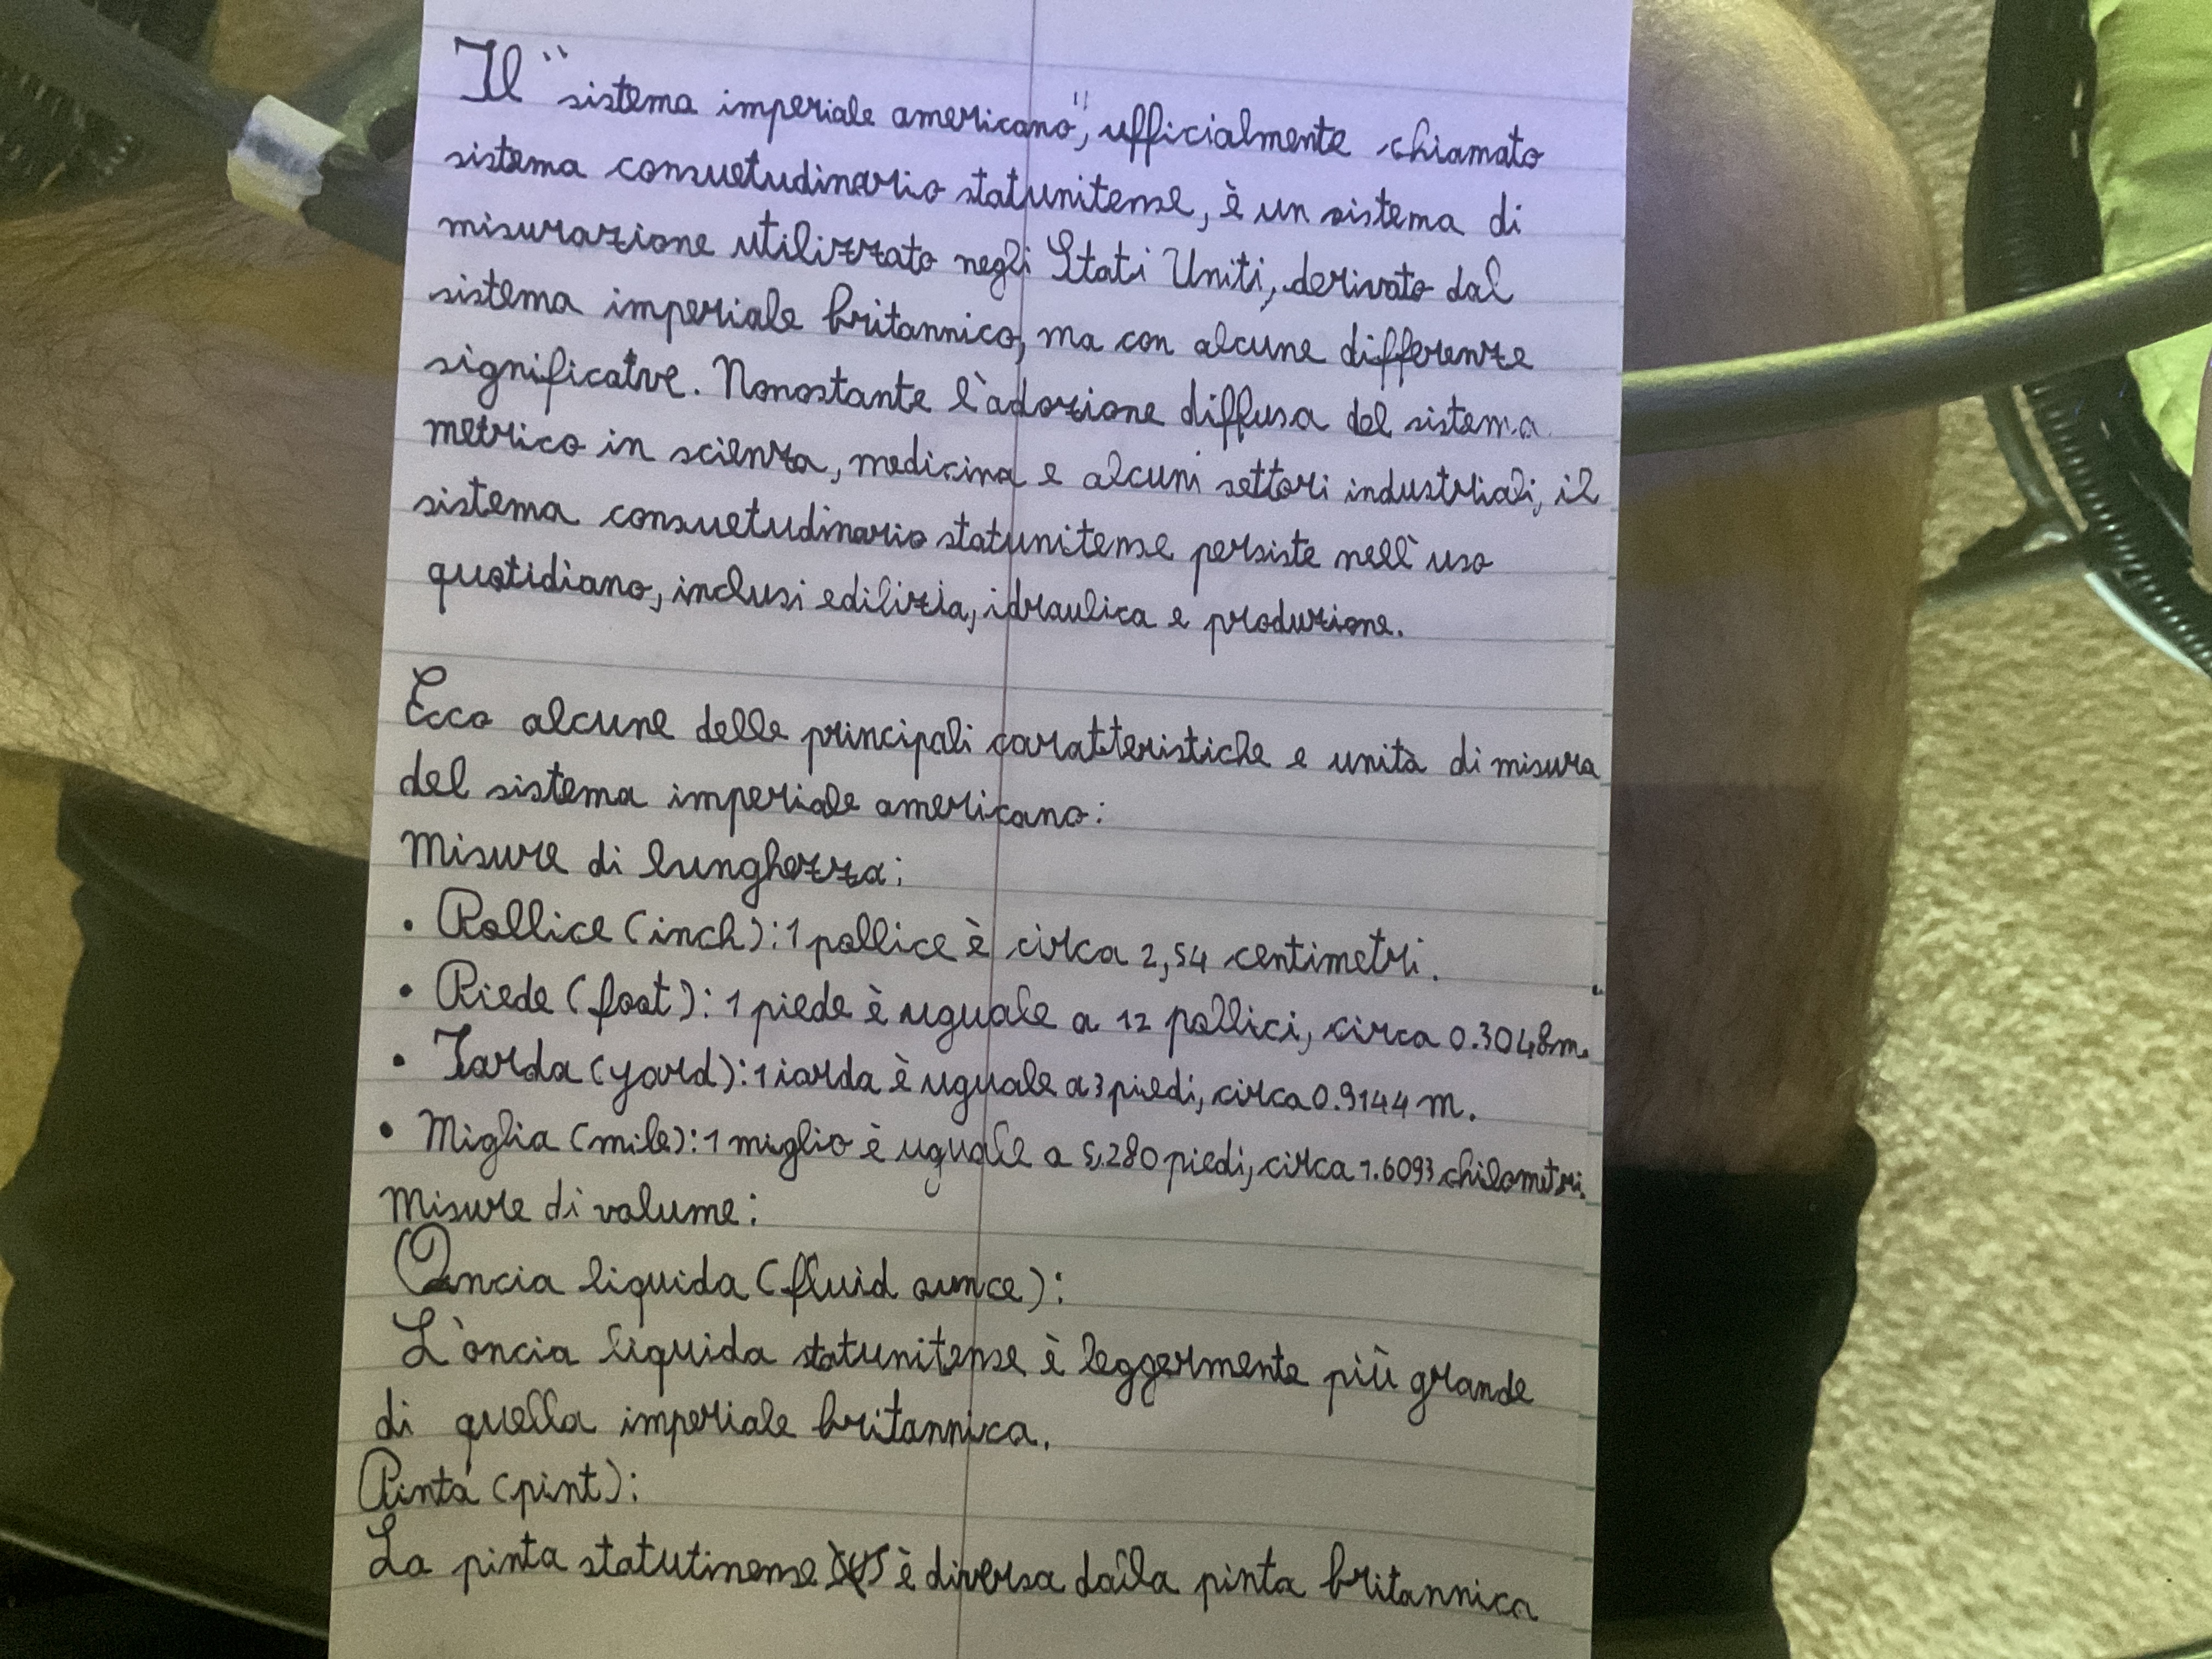 Il "sistema imperiale americano", ufficialmente chiamato
sistema consuetudinario statunitense, è un sistema di
misurazione utilizzato negli Stati Uniti, derivato dal
sistema imperiale britannico, ma con alcune differenze
significatve. Nonostante l'adozione diffusa del sistema
metrico in scienza, medicina e alcuni settori industriali, il
sistema consuetudinario statunitense persiste nell'uso
quotidiano, inclusi edilizia, idraulica e produzione.
Ecco alcune delle principali caratteristiche e unità di misura
del sistema imperiale americano:
Misure di lunghezza:
• Pollice (inch): 1 pollice è circa 2,54 centimetri.
• Piede (foot): 1 piede è uguale a 12 pollici, circa 0.3048m.
• Iarda (yard): 1 iarda è uguale a 3 piedi, circa 0.9144 m.
• Miglia (mile): 1 miglio è uguale a 5.280 piedi, circa 1.6093 chilometri.
Misure di volume:
Oncia liquida (fluid ounce):
L'oncia liquida statunitense è leggermente più grande
di quella imperiale britannica.
Pinta (pint):
La pinta statutinense è diversa dalla pinta britannica